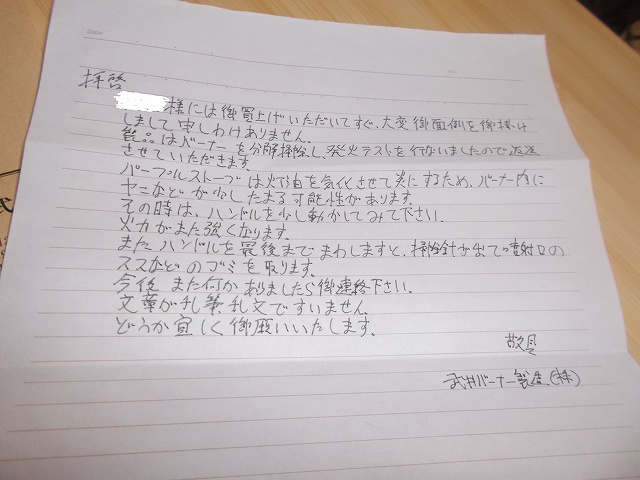 Date
拝啓
様には御買上げいただいてすぐ、大変御面倒を御掛け
しまして申しわけありません。
製品はバーナーを分解掃除し、発火テストを行ないましたので返送
させていただきます。
パープルストーブは灯油を気化させて炎にするため、バーナー内に
ヤニなどが少したまる可能性があります。
その時は、ハンドルを少し動かしてみて下さい。
火力がまた強くなります。
またハンドルを最後までまわしますと、掃除針が出て噴射口の
ススなどのゴミを取ります。
今後また何かありましたら御連絡下さい。
文章が乱筆、乱文ですいません。
どうか宜しく御願いいたします。
敬具
武井バーナー製造(株)